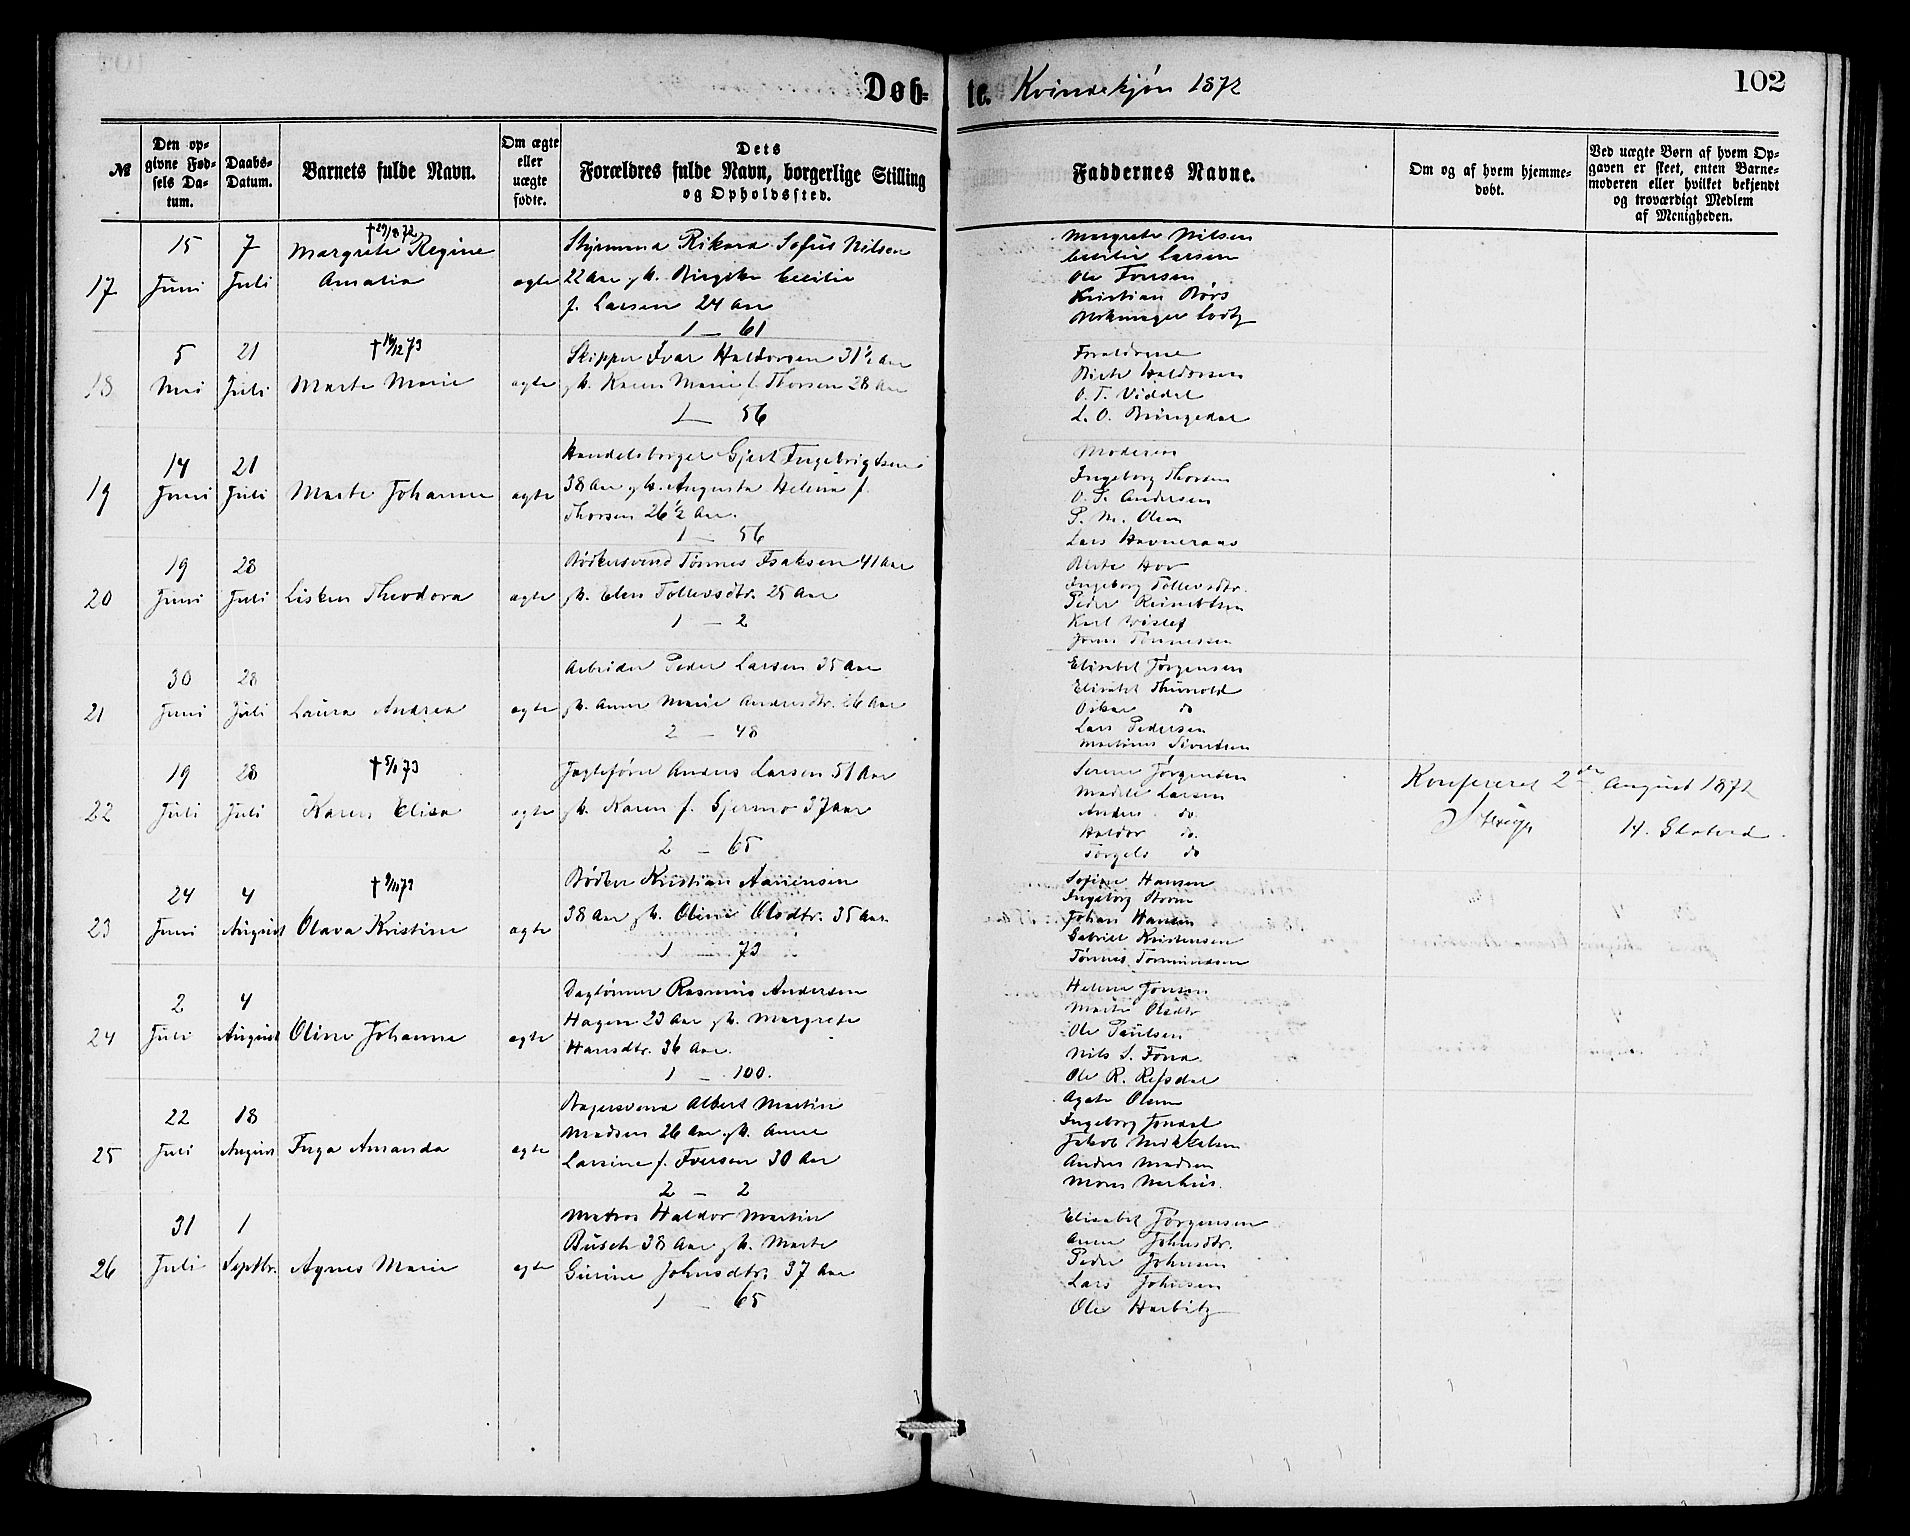 Døb-
te. Kvindekjøn 1872
102
№
Den op-
givne Fød-
sels Da-
tum.
Daabs-
Datum.
Barnets fulde Navn.
Om ægte
eller
uægte
fødte.
Dets
Forældres fulde Navn, borgerlige Stilling
og Opholdssted.
Faddernes Navne.
Om og af hvem hjemme-
døbt.
Ved uægte Børn af hvem Op-
gaven er skeet, enten Barne-
moderen eller hvilket bekjendt
og troværdigt Medlem
af Menigheden.
17
15
Juni
7
Juli
Margrete Regine
Amalia
ægte
Styrmand Rikard Sofus Nilsen
22 Aar
Cecilie
f. Larsen 24 Aar
1 — 61
Margrete Nilsen
Cecilie Larsen
Ole
Kristian Børs
18
5
Mai
21
Juli
Marte Marie
ægte
Skipper Ivar Haldorsen 31½ Aar
Karen Marie f. Thorsen 28 Aar
1 — 56
Forældrene
Haldorsen
O. T. Viddal
L. O.
19
14
Juni
21
Juli
Marte Johanne
ægte
Handelsborger Gjert Ingebrigtsen
38 Aar Augusta Helena f.
Thorsen 26½ Aar.
1 — 56
Moderen
Ingeborg Thorsen
Andersen
P. M. Olsen
Lars Havneraas
20
19
Juni
28
Juli
Lisken Theodora
ægte
Bødkersvend Tønnes Isaksen 41 Aar
Elen Tollevsdtr. 25 Aar
1 — 2
Hov
Ingeborg Tollevsdtr.
Peder
Karl
Tønnessen
21
30
Juni
28
Juli
Laura Andrea
ægte
Arbeider Peder Larsen 35 Aar
Anne Marie Andersdtr. 26 Aar
2 — 48
Elisabet Jørgensen
Elisabet
Oskar do
Lars Pedersen
Sivertsen
22
19
Juli
28
Juli
† 5/1 73
Karen Elisa
ægte
Jagtefører Anders Larsen 51 Aar
Karen f. Gjermo 37 Aar
2 — 65
Serine Jørgensen
Larsen
Anders do.
Haldor do.
Torgels do
Konfereret 2den August 1872
23
24
Juni
4
August
Olava Kristine
ægte
Bødker Kristian
38 Aar Oline Olsdtr. 35 Aar
1 — 73
Sofine Hansen
Ingeborg Strøm
Johan Hansen
Gabriel Kristensen
Tønnes Tormundsen
24
2
Juli
4
August
Oline Johanne
ægte
Daglønner Rasmus Andersen
Hagen 23 Aar Margrete
Hansdtr. 36 Aar.
1 — 100.
Helene Jonsen
Marte Olsdtr
Ole Paulsen
Nils S.
Ole R. Refsdal
25
22
Juli
18
August
Inga Amanda
ægte
Bagersvend Albert Martin
Madsen 26 Aar Anne
Larsine f. Iversen 30 Aar
2 — 2
Agate Olsen
Ingeborg Jondal
Jakob Mikkelsen
Anders Madsen
26
31
Juli
1
Septbr.
Agnes Marie
ægte
Matros Haldor Martin
Busch 38 Aar Marte
Gurine Johnsdtr. 37 Aar
1 — 65
Elisabet Jørgensen
Anne Johnsdtr.
Peder Johnsen
Lars Johnsen
Ole Harbitz